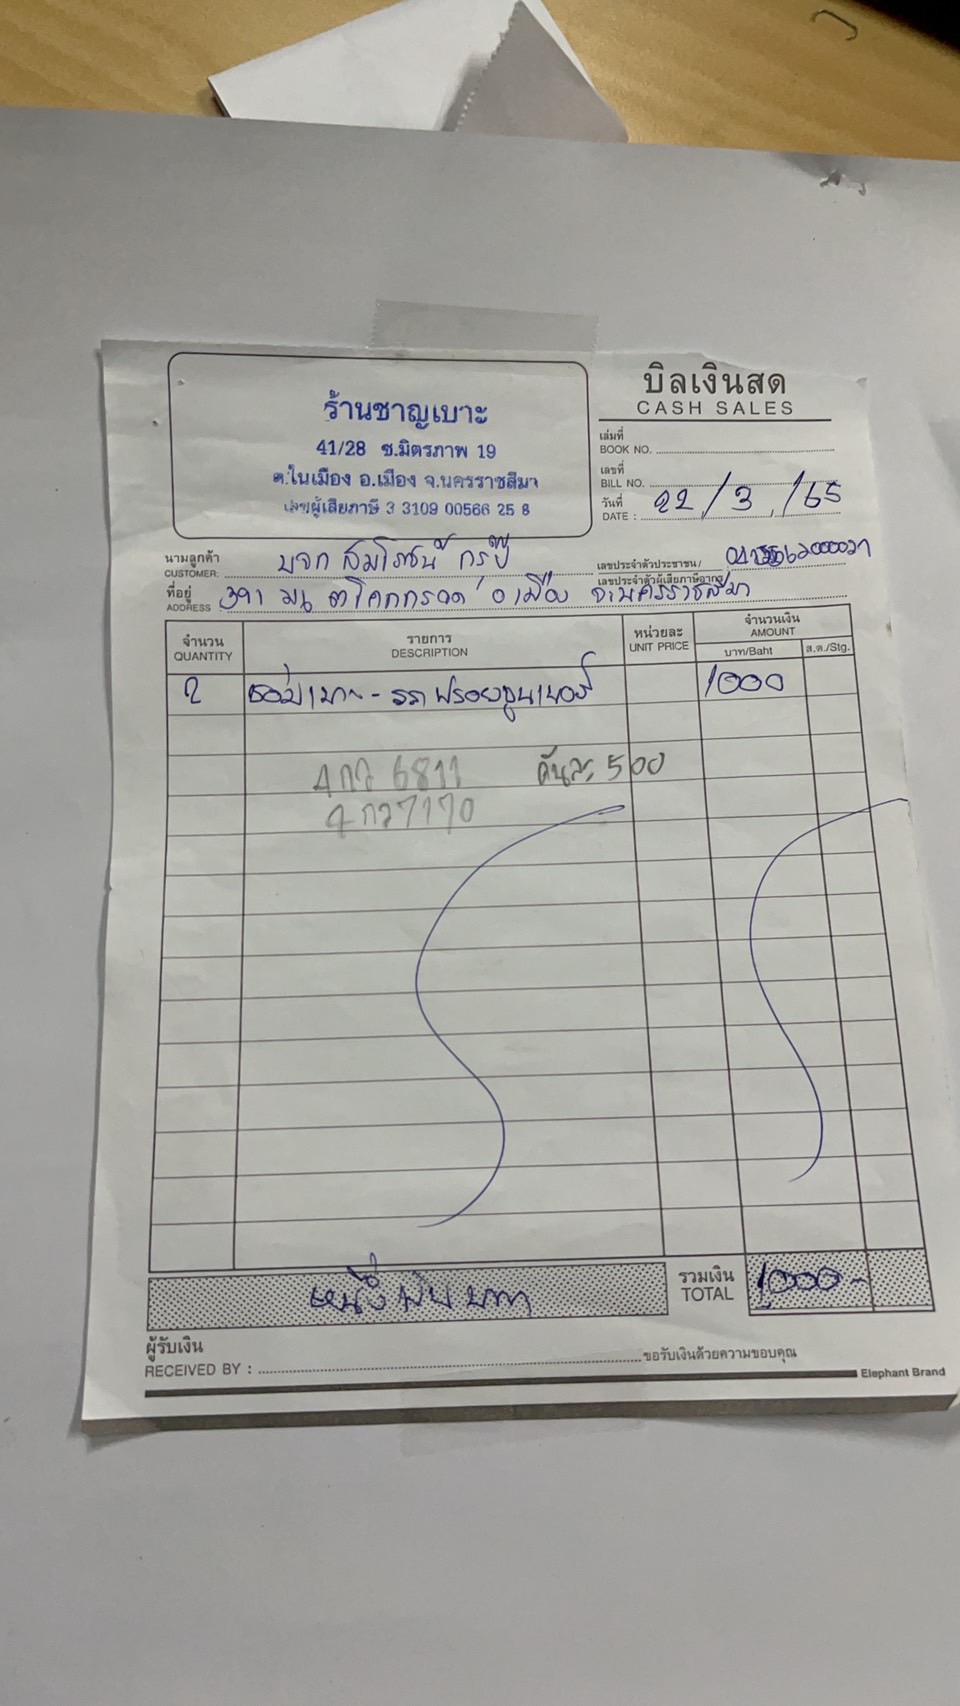 ร้านชาญเบาะ
41/28 ซ.มิตรภาพ 19
ต.ในเมือง อ.เมือง จ.นครราชสีมา
เลขผู้เสียภาษี 3 3109 00566 25 8
บิลเงินสด
CASH SALES
เล่มที่
BOOK NO.
เลขที่
BILL NO.
วันที่
DATE : 22/3/65
นามลูกค้า
CUSTOMER: บจก สมโภชน์ กรุ๊ป
เลขประจำตัวประชาชน/
เลขประจำตัวผู้เสียภาษีอากร
ที่อยู่
ADDRESS 391 ม.1 ต.โคกกรวด อ.เมือง จ.นครราชสีมา
จำนวน
QUANTITY
รายการ
DESCRIPTION
หน่วยละ
UNIT PRICE
จำนวนเงิน
AMOUNT
บาท/Baht
ส.ต./Stg.
2 ซ่อมเบาะ - รถ 1000
4กว 6811 คันละ 500
4กว7170
หนึ่งพันบาท
รวมเงิน
TOTAL 1000-
ผู้รับเงิน
RECEIVED BY :
ขอรับเงินด้วยความขอบคุณ
Elephant Brand